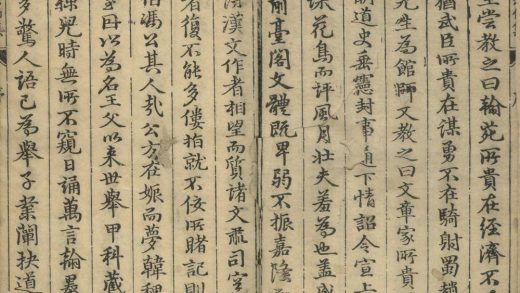 嘗教之曰翰苑所貴在經濟不
猶武臣所貴在謀勇不在騎射蜀趙
先生為館師又教之曰文章家所貴
明道史垂憲封事通下情詔令宣上
花鳥而評風月壯夫羞為也蓋
前臺閣文體既卑弱不振嘉隆
漢文作者相望而質諸文
者復不能多僂指就不佞所睹記則
馮公其人矣公方在娠而夢韓稚
母以為名王父以來世舉甲科藏
兒時無所不窺日誦萬言翰墨
多驚人語已為舉子業闡抉道